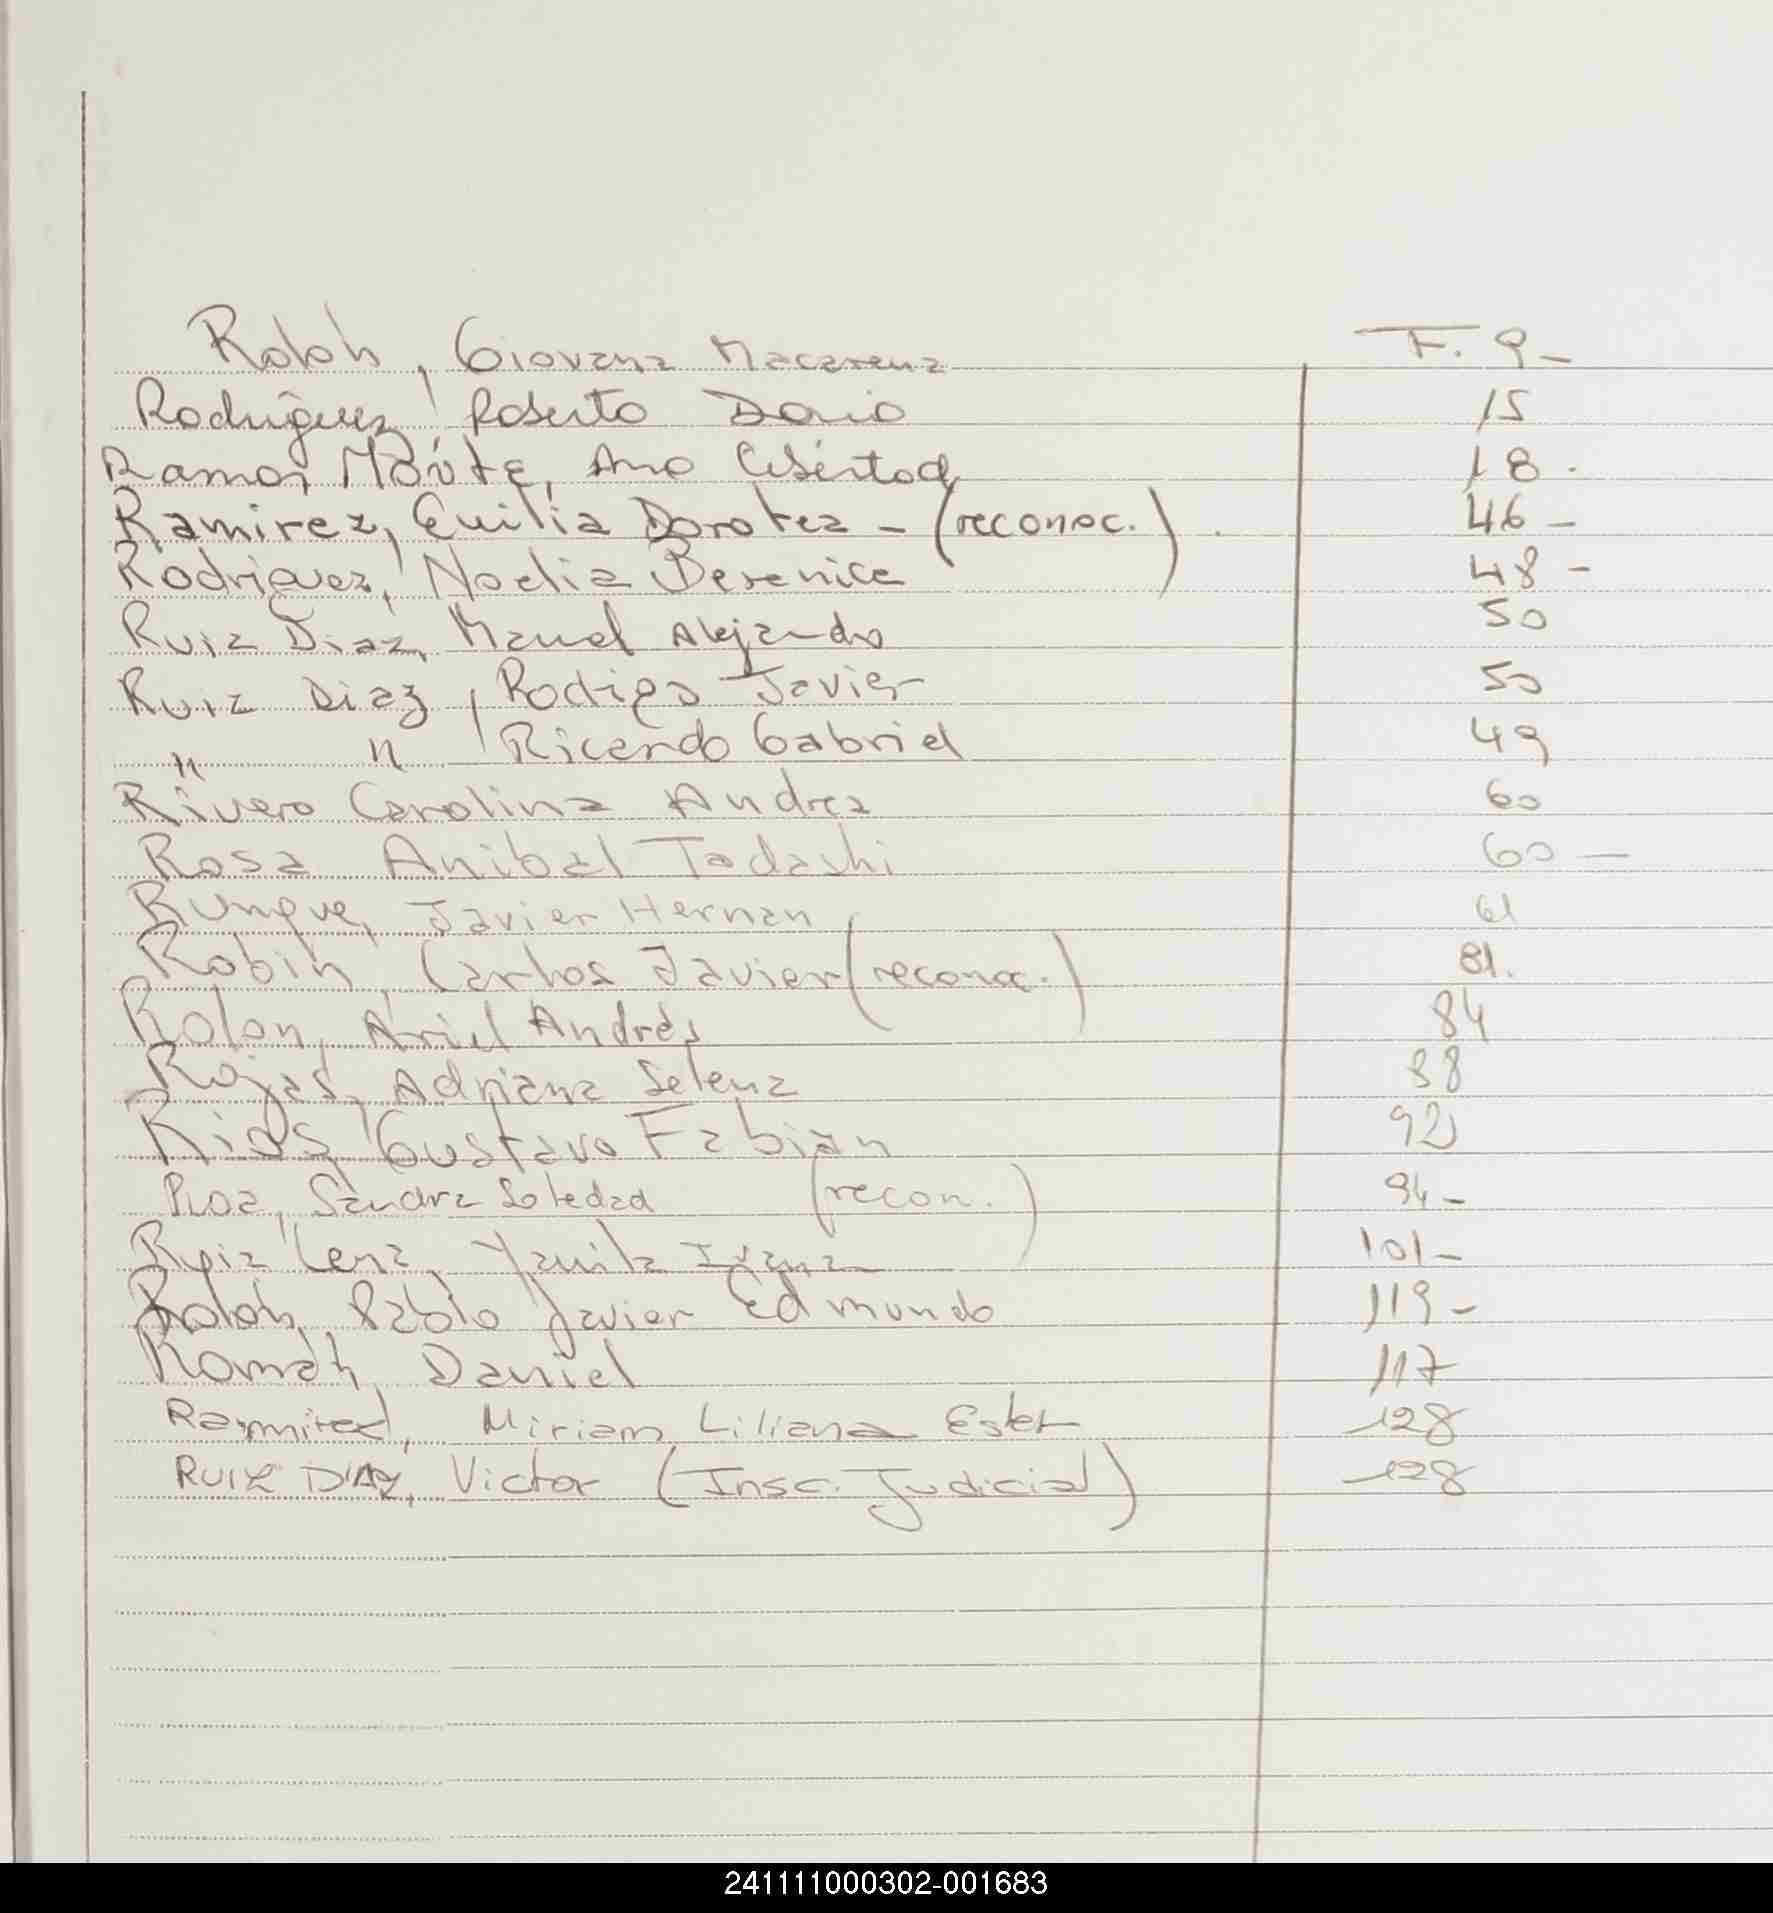 Roloh, Giovana Macarena F. 9_
Rodriguez, Roberto Dario 15
Ramos, Ana 18.
Ramirez, Emilia Dorotea - (reconoc.) 46 -
Rodriguez, Noelia Berenice 48 -
Ruiz Diaz, Manuel Alejandro 50
Ruiz Diaz, Rodrigo Javier 50
" " Ricardo Gabriel 49
Rivero Carolina Andrea 60
Rosa Anibal Tadashi 60 —
Runque, Javier Hernan 61
Robin, Carlos Javier (reconoc.) 81.
Rolon, Ariel Andrés 84
Rojas, Adriana Selena 88
Rios, Gustavo Fabián 92
Roa, Sandra Soledad (recon.) 94 -
Ruiz Lena, Yamila Ivana 101 -
Roloh, Pablo Javier Edmundo 119 -
Román, Daniel 117
Ramirez, Miriam Liliana Ester 128
RUIZ DIAZ, Victor (Insc. Judicial) 128
241111000302-001683